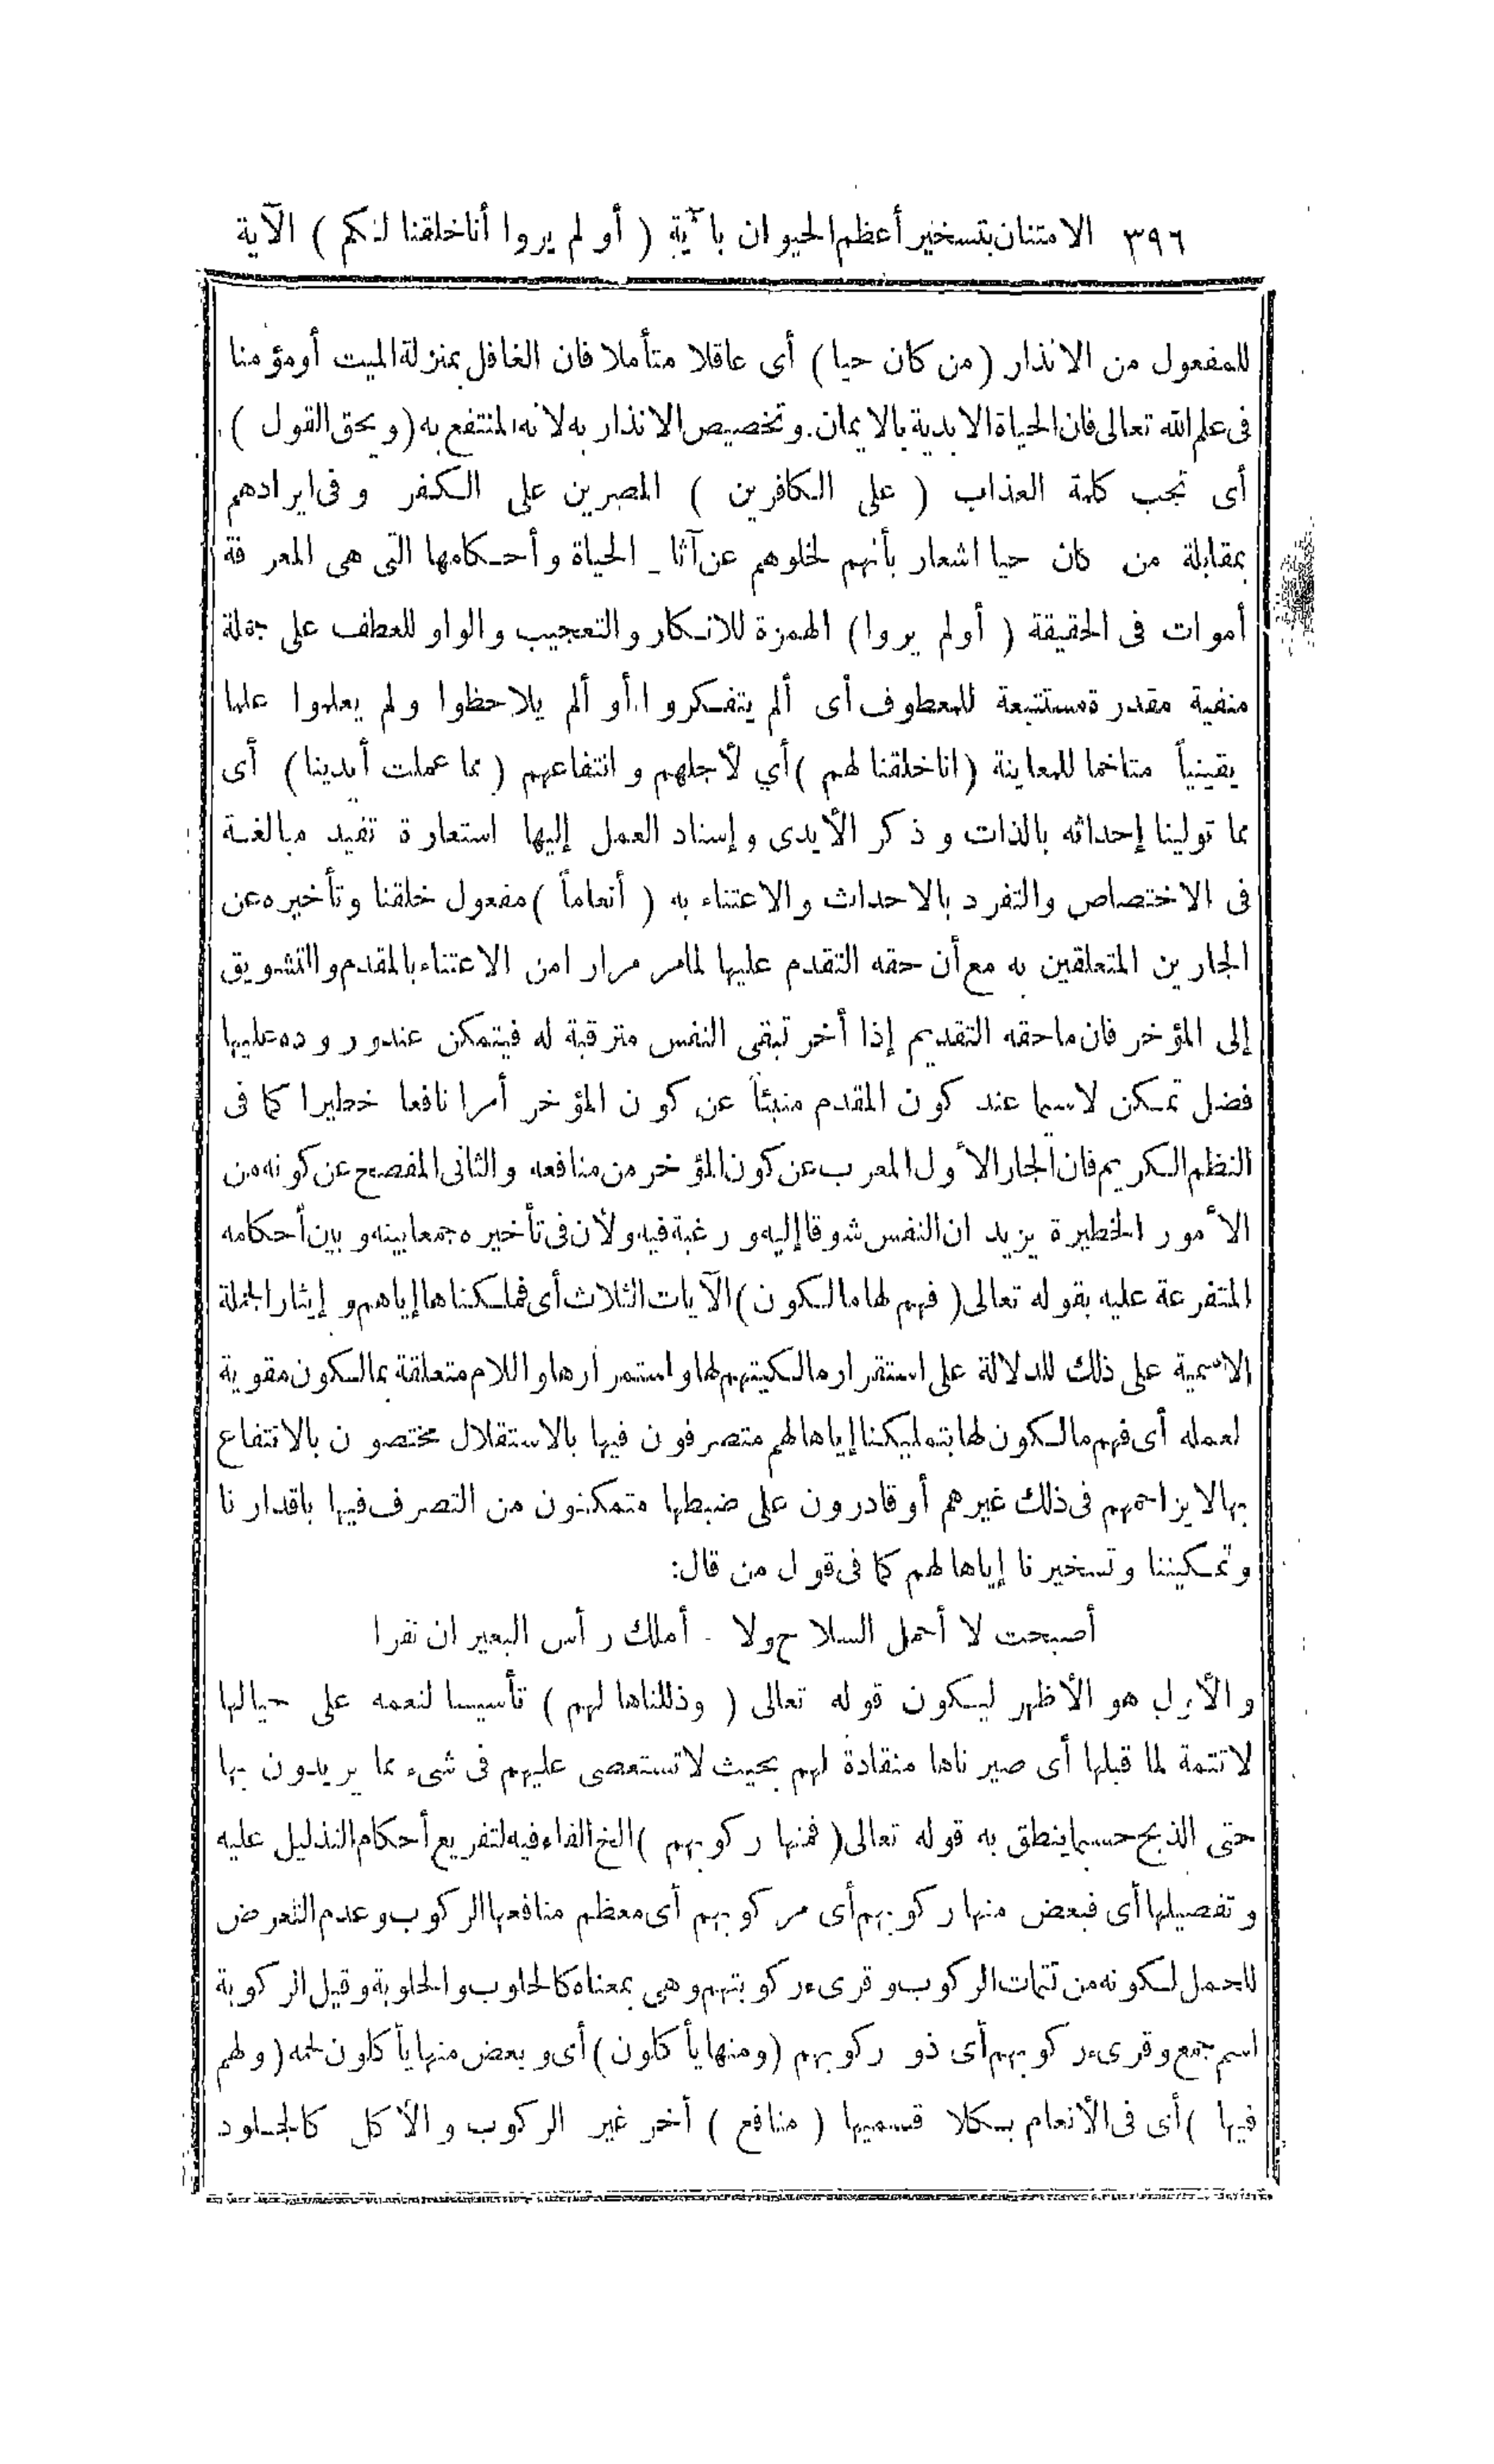 ٣٩٦ الامتنان بتسخير أعظم الحيوان بآية ( أو لم يروا أنا خلقنا لكم ) الآية
للمفعول من الانذار (من كان حيا) أى عاقلا متأملا فان الغافل بمنزلة الميت أومؤمنا
فى علم الله تعالى فان الحياة الابدية بالايمان. وتخصيص الانذار به لانه المنتفع به (ويحق القول )
أى تجب كلمة العذاب ( على الكافرين ) المصرين على الكفر وفى ايرادهم
بمقابلة من كان حيا اشعار بأنهم لخلوهم عن آثا الحياة وأحكامها التى هى المعرفة
أموات فى الحقيقة ( أولم يروا) الهمزة للانكار والتعجيب والواو للعطف على جملة
منفية مقدرة مستتبعة للمعطوف أى ألم يتفكروا أو ألم يلاحظوا ولم يعلموا علما
يقينياً متاخما للمعاينة (انا خلقنا لهم ) أي لأجلهم وانتفاعهم ( مما عملت أيدينا ) أى
مما تولينا إحداثه بالذات وذكر الأيدى وإسناد العمل إليها استعارة تفيد مبالغة
فى الاختصاص والتفرد بالاحداث والاعتناء به ( أنعاماً ) مفعول خلقنا وتأخيره عن
الجارين المتعلقين به مع أن حقه التقدم عليها لمامر مرارا من الاعتناء بالمقدم والتشويق
إلى المؤخر فان ماحقه التقديم إذا أخر تبقى النفس مترقبة له فيتمكن عند وروده عليها
فضل تمكن لاسيما عند كون المقدم منبئاً عن كون المؤخر أمرا نافعا خطيرا كما فى
النظم الكريم فان الجار الأول المعرب عن كون المؤخر من منافعه والثانى المفصح عن كونه من
الأمور الخطيرة يزيدان النفس شوقا إليه ورغبة فيه ولأن فى تأخيره جمعا بينه وبين أحكامه
المتفرعة عليه بقوله تعالى ( فهم لها مالكون ) الآيات الثلاث أى فملكناها إياهم وإيثار الجملة
الاسمية على ذلك للدلالة على استقرار مالكيتهم لها واستمرارها واللام متعلقة بمالكون مقوية
لعمله أى فهم مالكون لها بتمليكنا إياها لهم متصرفون فيها بالاستقلال مختصون بالانتفاع
بها لا يزاحمهم فى ذلك غيرهم أو قادرون على ضبطها متمكنون من التصرف فيها باقدارنا
وتمكيننا وتسخيرنا إياها لهم كما فى قول من قال:
أصبحت لا أحمل السلاح ولا - أملك رأس البعير ان نفرا
والأول هو الأظهر ليكون قوله تعالى ( وذللناها لهم ) تأسيسا لنعمه على حيالها
لا تتمة لما قبلها أى صيرناها منقادة لهم بحيث لا تستعصى عليهم فى شىء مما يريدون بها
حتى الذبح حسبما ينطق به قوله تعالى ( فمنها ركوبهم ) الخ الفاء فيه لتفريع أحكام التذليل عليه
وتفصيلها أى فبعض منها ركوبهم أى مركوبهم أى معظم منافعها الركوب وعدم التعرض
للحمل لكونه من تتمات الركوب وقرىء ركوبتهم وهى بمعناه كالحلوب والحلوبة وقيل الركوبة
اسم جمع وقرىء ركوبهم أى ذو ركوبهم (ومنها يأكلون) أى وبعض منها يأكلون لحمه (ولهم
فيها ) أى فى الأنعام بكلا قسميها ( منافع ) أخر غير الركوب والأكل كالجلود